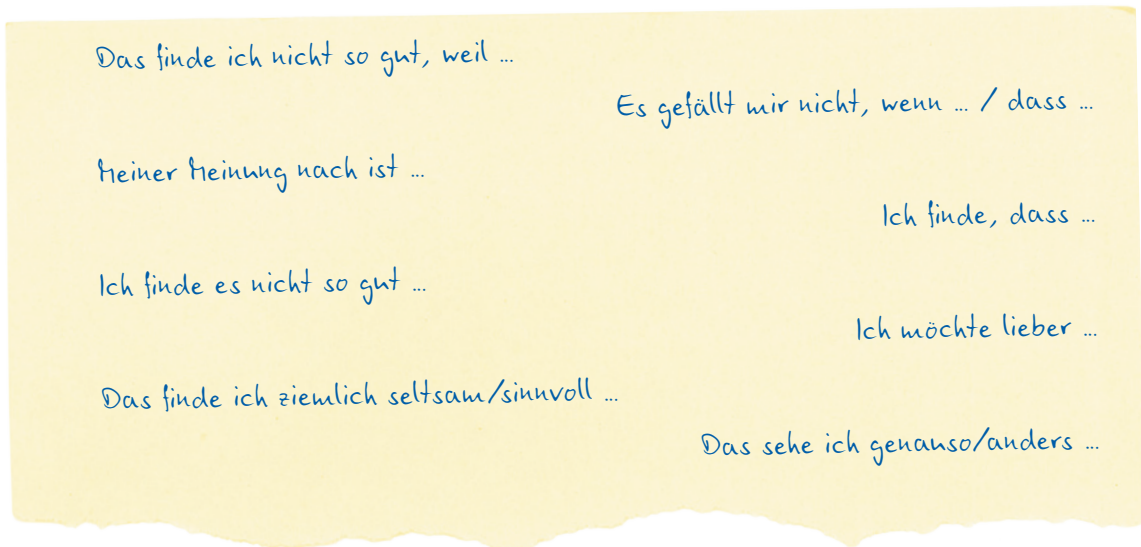 Das finde ich nicht so gut, weil …
Es gefällt mir nicht, wenn … / dass …
Meiner Meinung nach ist …
Ich finde, dass …
Ich finde es nicht so gut …
Ich möchte lieber …
Das finde ich ziemlich seltsam/sinnvoll …
Das sehe ich genauso/anders …